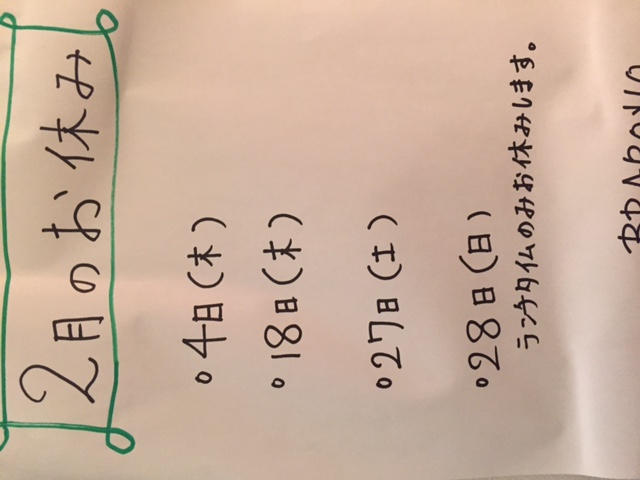 2月のお休み
。4日(木)
。18日(木)
。27日(土)
。28日(日)
ランチタイムのみお休みします。